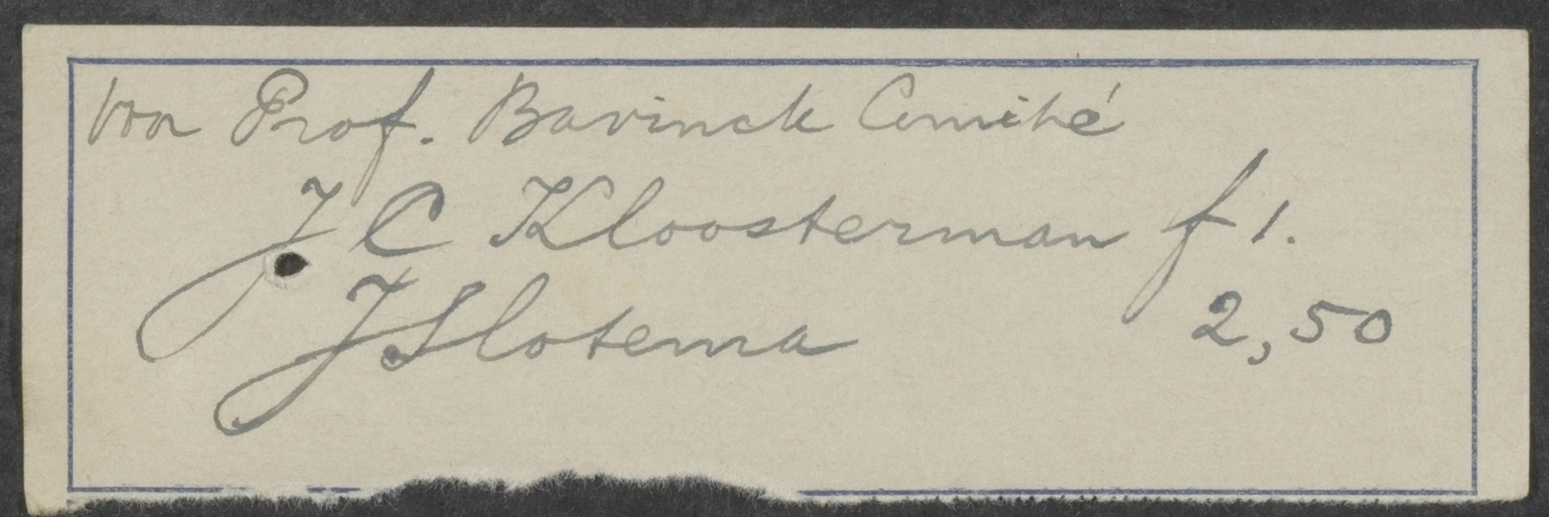 voor Prof. Bavinck Comité
J C Kloosterman f 1.
J Slotema 2,50